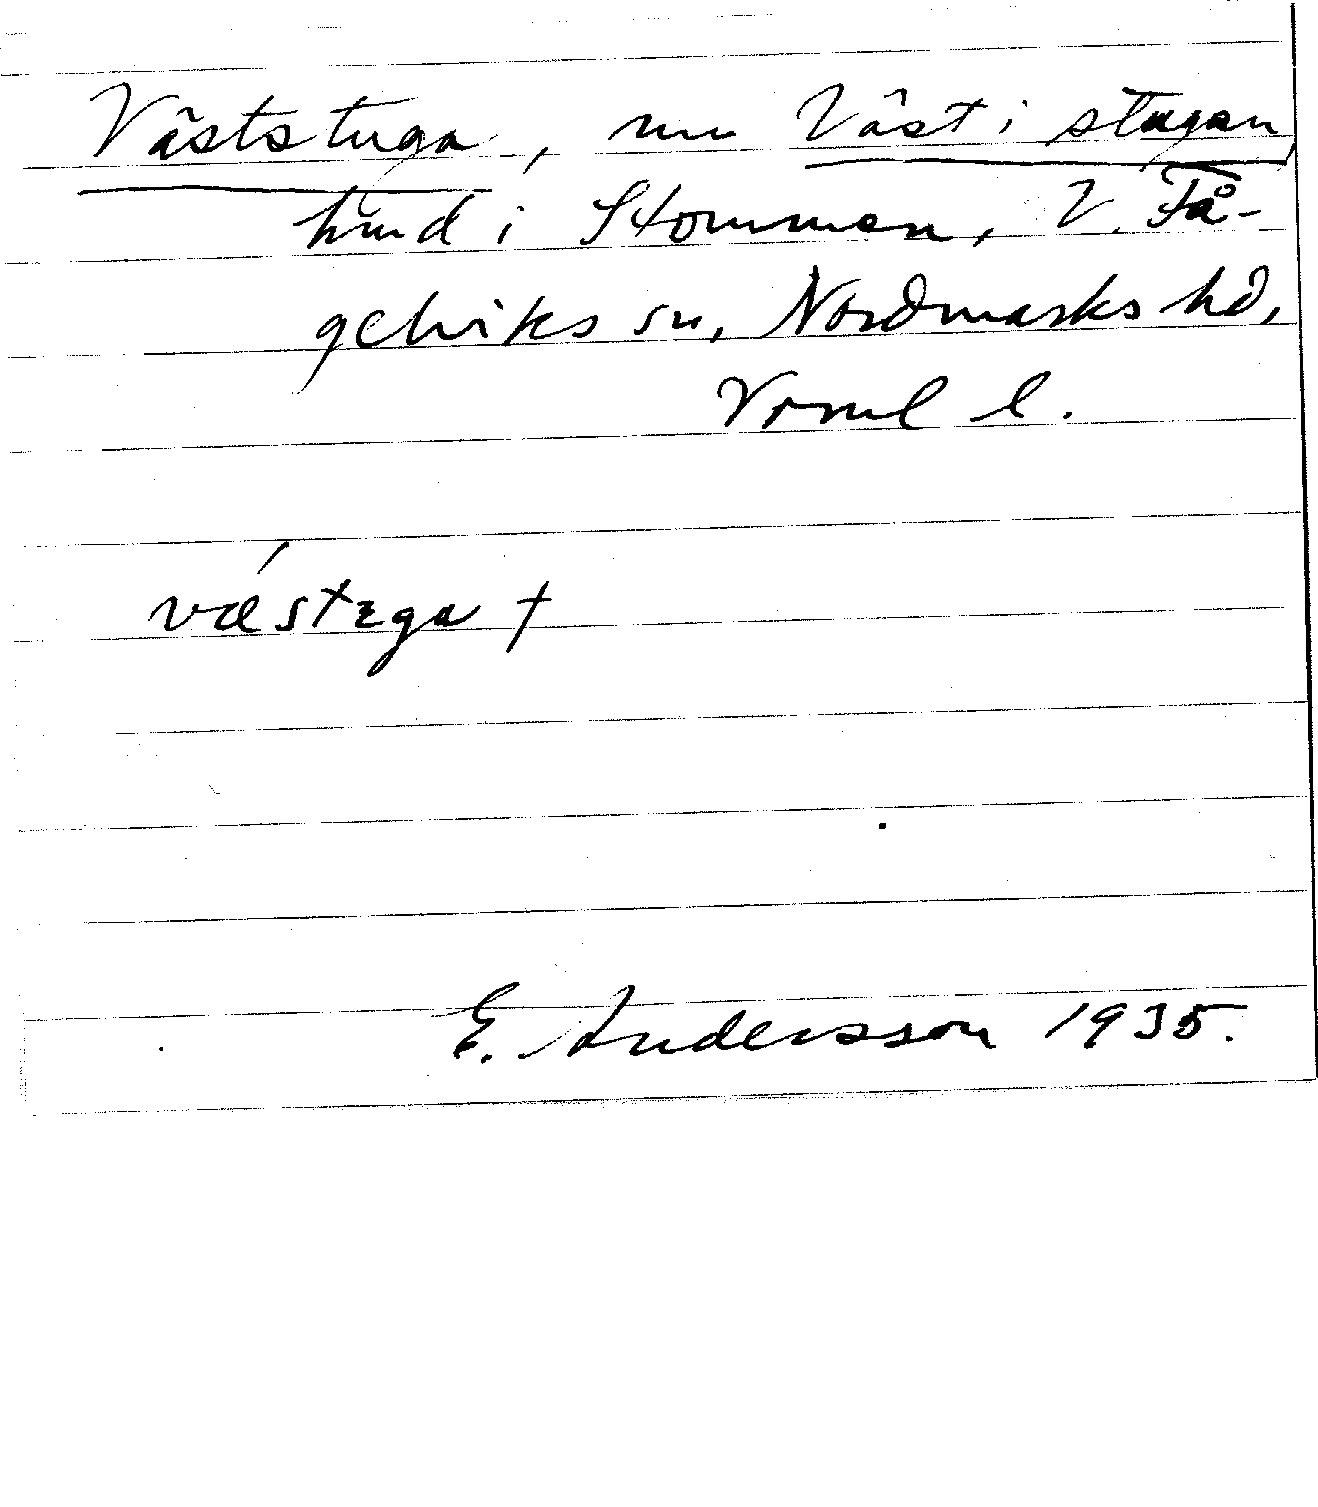 Väststuga, nu Väst i stugan,
hmd i Stommen, V. Få-
gelviks sn, Nordmarks hd,
Vrml l.
væ´stɛga †
E. Andersson 1935.